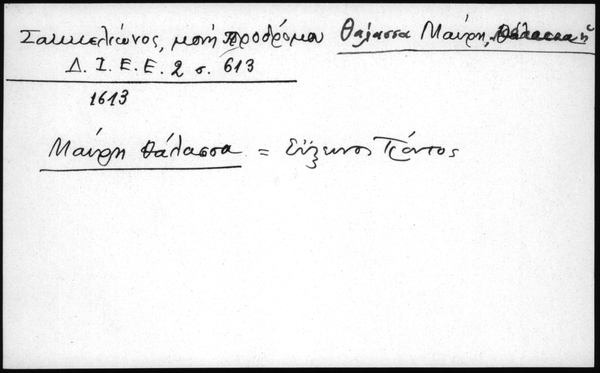 Σακκελίωνος, μονή προδρόμου Θάλασσα Μαύρη, ἡ
Δ. Ι. Ε. Ε. 2 σ. 613
1613
Μαύρη θάλασσα = Εὔξεινος Πόντος